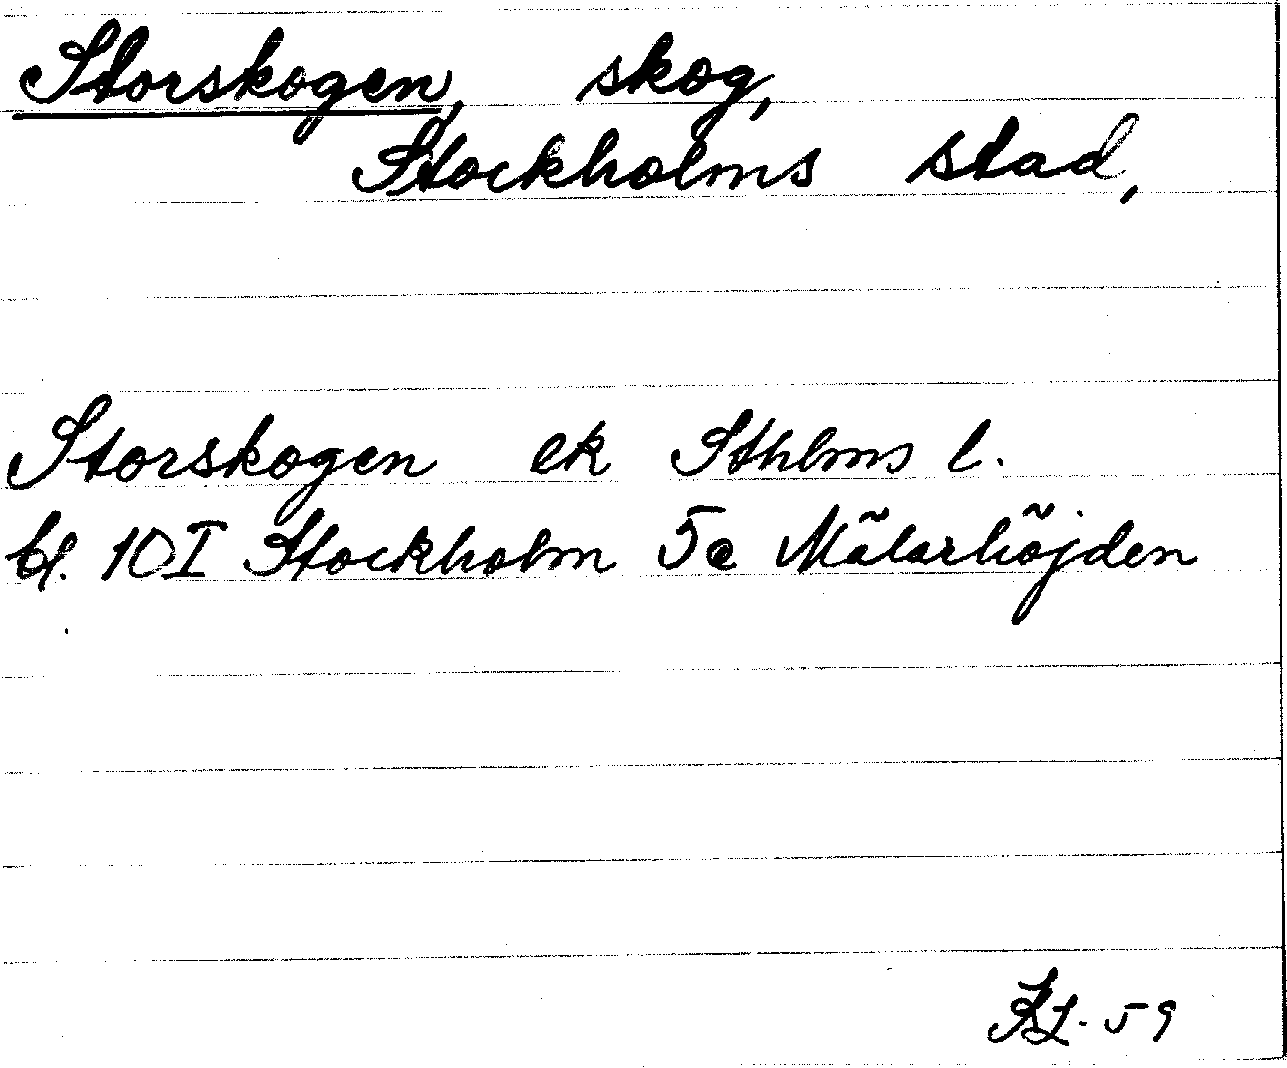 Storskogen, skog,
Stockholms stad,
Storskogen ek Sthlms l.
bl. 10I Stockholm 5e Mälarhöjden
59